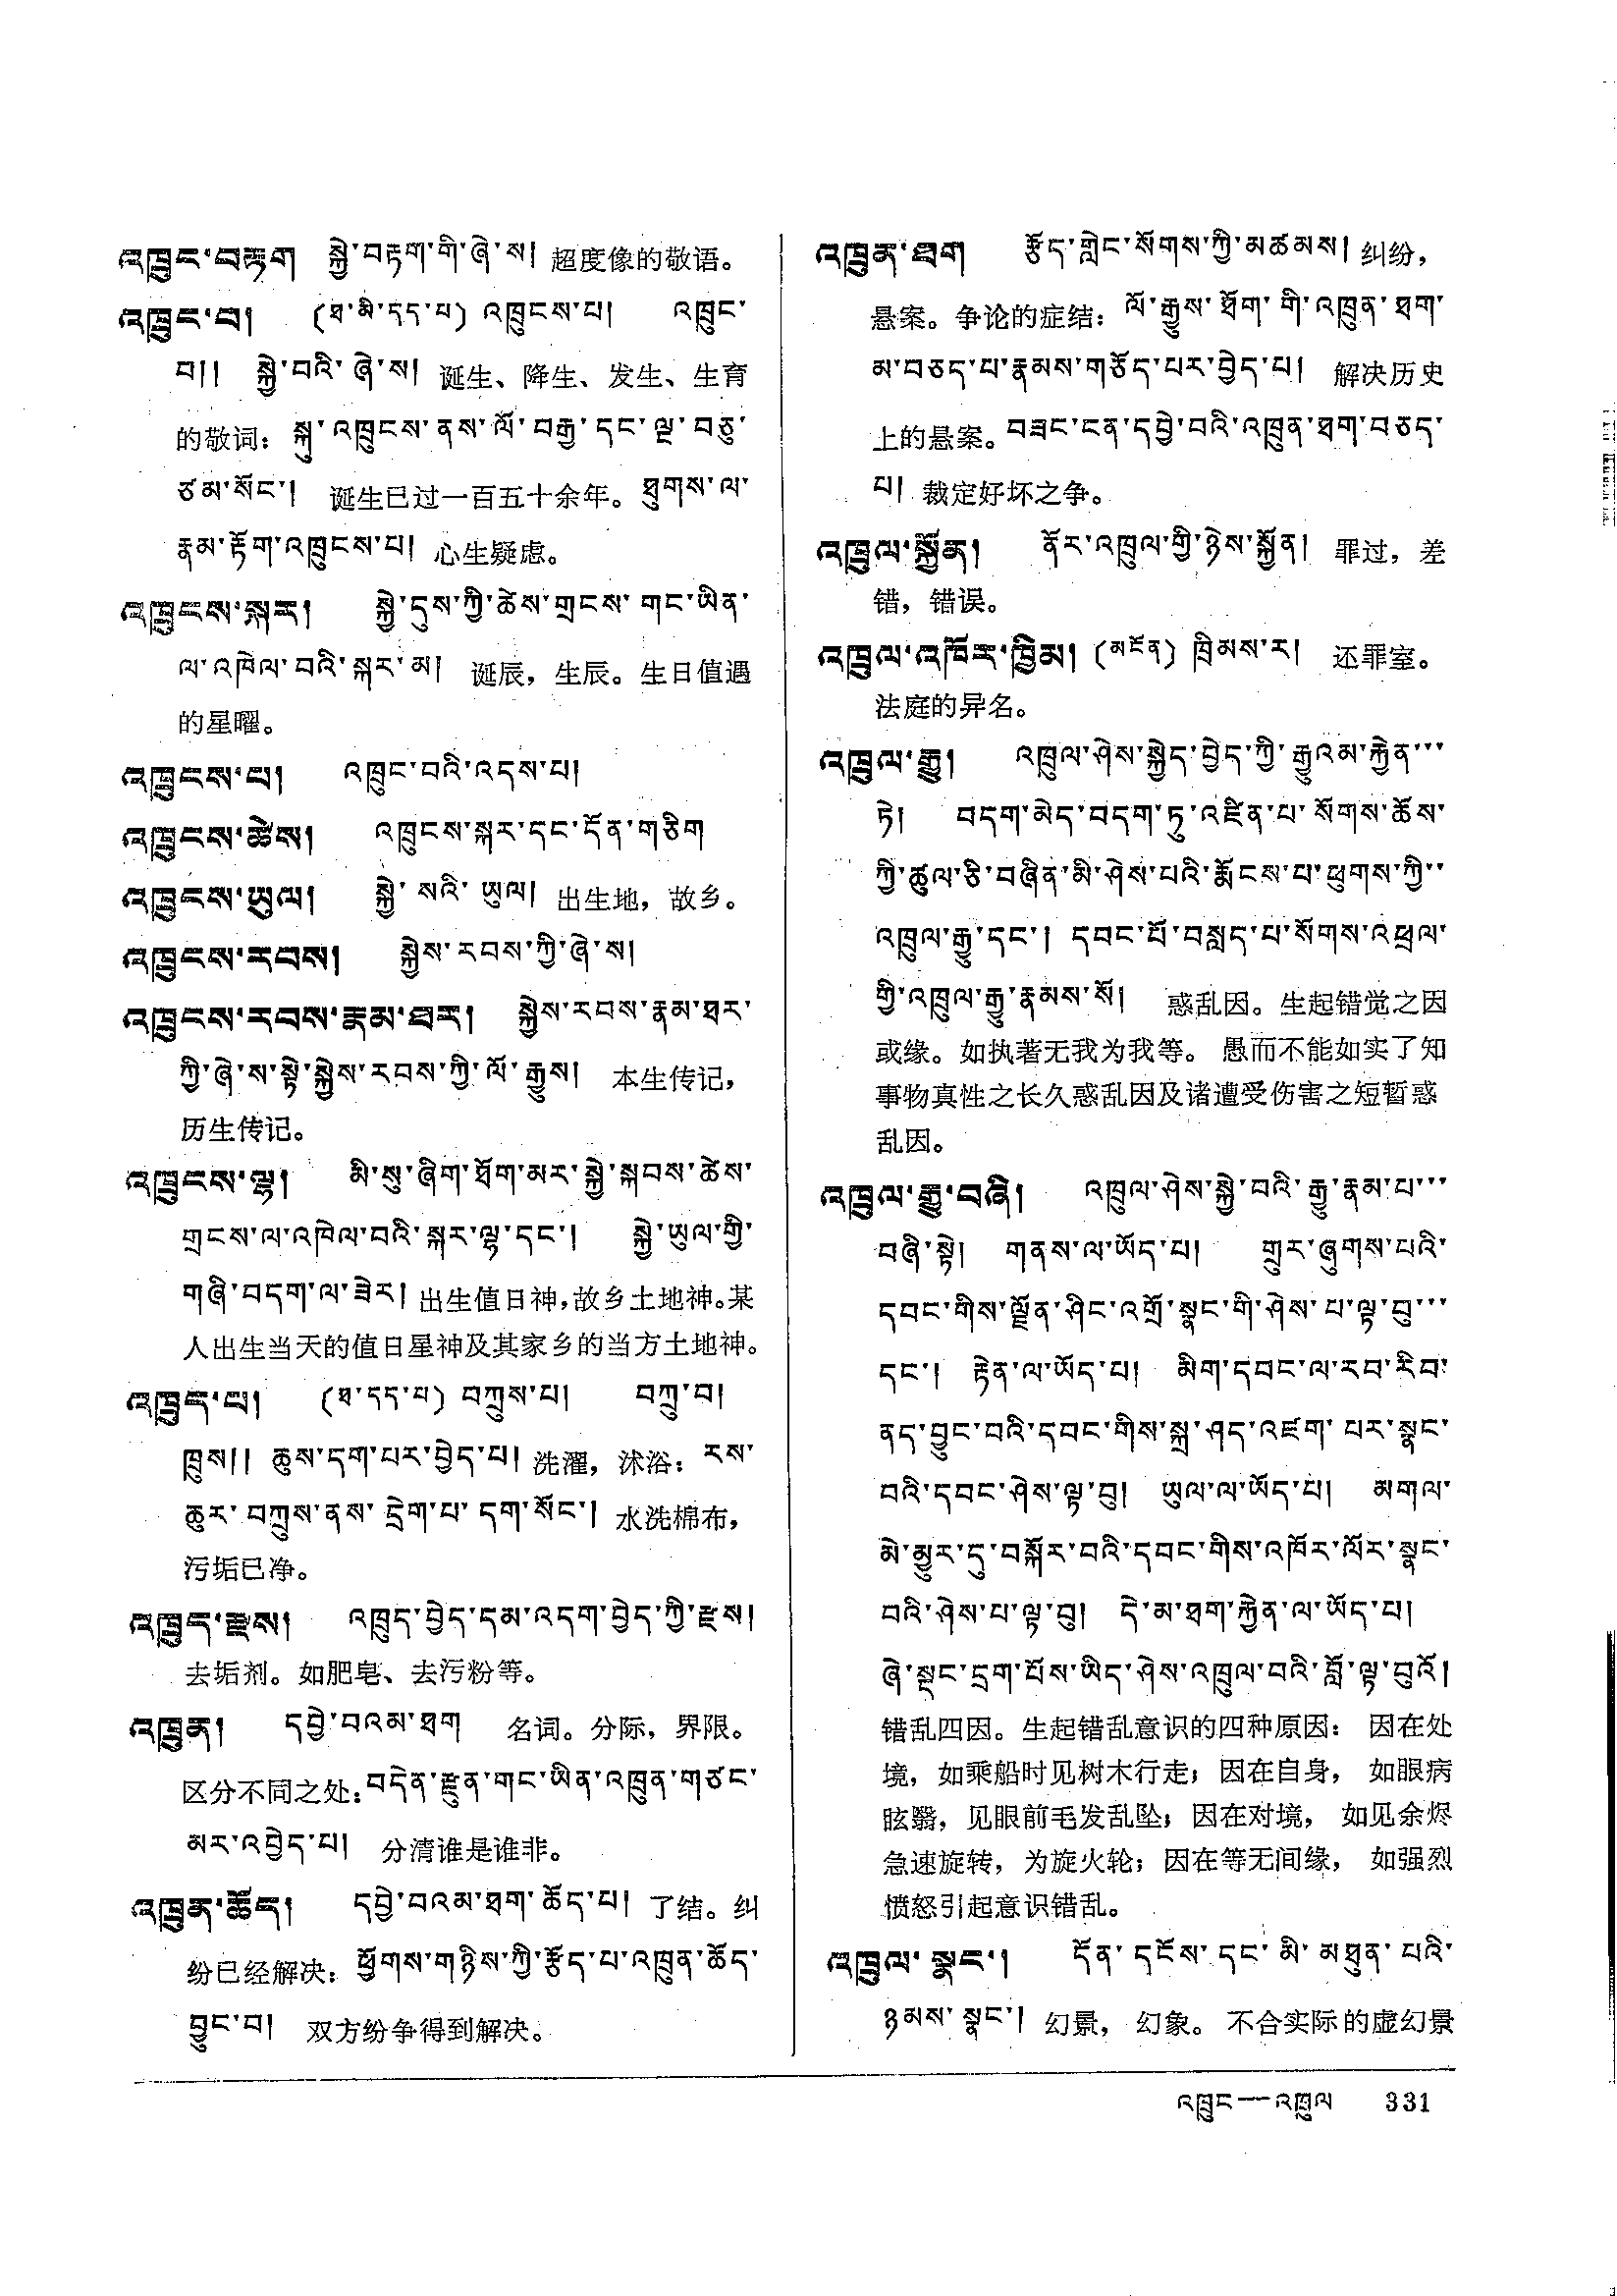 འཁྲུང་བརྟག སྐྱེ་བརྟག་གི་ཞེ་ས། 超度像的敬语。
འཁྲུང་བ། (ཐ་མི་དད་པ) འཁྲུངས་པ། འཁྲུང་
བ།། སྐྱེ་བའི་ཞེ་ས། 诞生、降生、发生、生育
的敬词：སྐུ་འཁྲུངས་ནས་ལོ་བརྒྱ་དང་ལྔ་བཅུ་
ཙམ་སོང་། 诞生已过一百五十余年。ཐུགས་ལ་
རྣམ་རྟོག་འཁྲུངས་པ། 心生疑虑。
འཁྲུངས་སྐར། སྐྱེ་དུས་ཀྱི་ཚེས་གྲངས་གང་ཡིན་
ལ་འཁེལ་བའི་སྐར་མ། 诞辰，生辰。生日值遇
的星曜。
འཁྲུངས་པ། འཁྲུང་བའི་འདས་པ།
འཁྲུངས་ཚེས། འཁྲུངས་སྐར་དང་དོན་གཅིག
འཁྲུངས་ཡུལ། སྐྱེ་སའི་ཡུལ། 出生地，故乡。
འཁྲུངས་རབས། སྐྱེས་རབས་ཀྱི་ཞེ་ས།
འཁྲུངས་རབས་རྣམ་ཐར། སྐྱེས་རབས་རྣམ་ཐར་
ཀྱི་ཞེ་ས་སྟེ་སྐྱེས་རབས་ཀྱི་ལོ་རྒྱུས། 本生传记，
历生传记。
འཁྲུངས་ལྷ། མི་སུ་ཞིག་ཐོག་མར་སྐྱེ་སྐབས་ཚེས་
གྲངས་ལ་འཁེལ་བའི་སྐར་ལྷ་དང་། སྐྱེ་ཡུལ་གྱི་
གཞི་བདག་ལ་ཟེར། 出生值日神，故乡土地神。某
人出生当天的值日星神及其家乡的当方土地神。
འཁྲུད་པ། (ཐ་དད་པ) བཀྲུས་པ། བཀྲུ་བ།
ཁྲུས།། ཆུས་དག་པར་བྱེད་པ། 洗濯，沐浴：རས་
ཆུར་བཀྲུས་ནས་དྲེག་པ་དག་སོང་། 水洗棉布，
污垢已净。
འཁྲུད་རྫས། འཁྲུད་བྱེད་དམ་འདག་བྱེད་ཀྱི་རྫས།
去垢剂。如肥皂、去污粉等。
འཁྲུན། དབྱེ་བའམ་ཐག 名词。分际，界限。
区分不同之处：བདེན་རྫུན་གང་ཡིན་འཁྲུན་གཙང་
མར་འབྱེད་པ། 分清谁是谁非。
འཁྲུན་ཆོད། དབྱེ་བའམ་ཐག་ཆོད་པ། 了结。纠
纷已经解决：ཕྱོགས་གཉིས་ཀྱི་རྩོད་པ་འཁྲུན་ཆོད་
བྱུང་བ། 双方纷争得到解决。
འཁྲུན་ཐག རྩོད་གླེང་སོགས་ཀྱི་མཚམས། 纠纷，
悬案。争论的症结：ལོ་རྒྱུས་ཐོག་གི་འཁྲུན་ཐག་
མ་བཅད་པ་རྣམས་གཅོད་པར་བྱེད་པ། 解决历史
上的悬案。བཟང་ངན་དབྱེ་བའི་འཁྲུན་ཐག་བཅད་
པ། 裁定好坏之争。
འཁྲུལ་སྐྱོན། ནོར་འཁྲུལ་གྱི་ཉེས་སྐྱོན། 罪过，差
错，错误。
འཁྲུལ་འཁོར་ཁྱིམ། (མངོན) ཁྲིམས་ར། 还罪室。
法庭的异名。
འཁྲུལ་རྒྱུ། འཁྲུལ་ཤེས་སྐྱེད་བྱེད་ཀྱི་རྒྱུའམ་རྐྱེན་་་
ཏེ། བདག་མེད་བདག་ཏུ་འཛིན་པ་སོགས་ཆོས་
ཀྱི་ཚུལ་ཅི་བཞིན་མི་ཤེས་པའི་རྨོངས་པ་ཕུགས་ཀྱི་་
འཁྲུལ་རྒྱུ་དང་། དབང་པོ་བསླད་པ་སོགས་འཕྲལ་
གྱི་འཁྲུལ་རྒྱུ་རྣམས་སོ། 惑乱因。生起错觉之因
或缘。如执著无我为我等。 愚而不能如实了知
事物真性之长久惑乱因及诸遭受伤害之短暂惑
乱因。
འཁྲུལ་རྒྱུ་བཞི། འཁྲུལ་ཤེས་སྐྱེ་བའི་རྒྱུ་རྣམ་པ་་་
བཞི་སྟེ། གནས་ལ་ཡོད་པ། གྲུར་ཞུགས་པའི་
དབང་གིས་ལྗོན་ཤིང་འགྲོ་སྣང་གི་ཤེས་པ་ལྟ་བུ་་་
དང་། རྟེན་ལ་ཡོད་པ། མིག་དབང་ལ་རབ་རིབ་
ནད་བྱུང་བའི་དབང་གིས་སྐྲ་ཤད་འཛག་པར་སྣང་
བའི་དབང་ཤེས་ལྟ་བུ། ཡུལ་ལ་ཡོད་པ། མགལ་
མེ་མྱུར་དུ་བསྐོར་བའི་དབང་གིས་འཁོར་ལོར་སྣང་
བའི་ཤེས་པ་ལྟ་བུ། དེ་མ་ཐག་རྐྱེན་ལ་ཡོད་པ།
ཞེ་སྡང་དྲག་པོས་ཡིད་ཤེས་འཁྲུལ་བའི་བློ་ལྟ་བུའོ།
错乱四因。生起错乱意识的四种原因： 因在处
境，如乘船时见树木行走；因在自身， 如眼病
眩翳，见眼前毛发乱坠；因在对境， 如见余烬
急速旋转，为旋火轮；因在等无间缘， 如强烈
愤怒引起意识错乱。
འཁྲུལ་སྣང་། དོན་དངོས་དང་མི་མཐུན་པའི་
ཉམས་སྣང་། 幻景， 幻象。 不合实际的虚幻景
འཁྲུང—འཁྲུལ 331